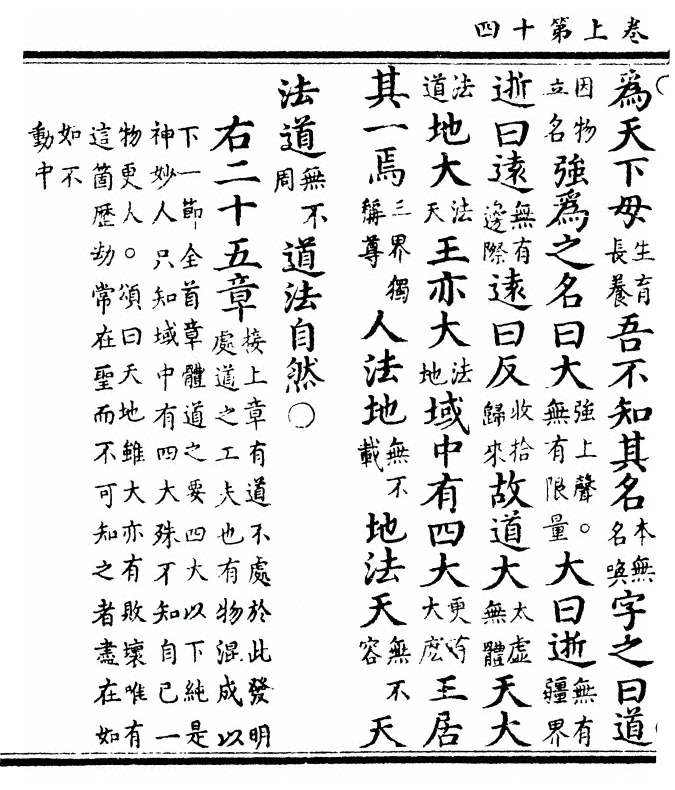 卷上第十四
為天下母生育長養吾不知其名本無名喚字之曰道
因物立名強為之名曰大強上聲。無有限量大曰逝無有疆界
逝曰遠無有邊際遠曰反收拾歸來故道大太虛無體天大
法道地大法天王亦大法地域中有四大更吟大庅王居
其一焉三界獨稱尊人法地無不載地法天無不容天
法道無不周道法自然○
右二十五章接上章有道不處於此發明處道之工夫也有物混成以
下一節全首章體道之要四大以下純是
神妙人只知域中有四大殊不知自己一
物更人。頌曰天地雖大亦有敗壞唯有
這箇歷劫常在聖而不可知之者盡在如
如不
動中